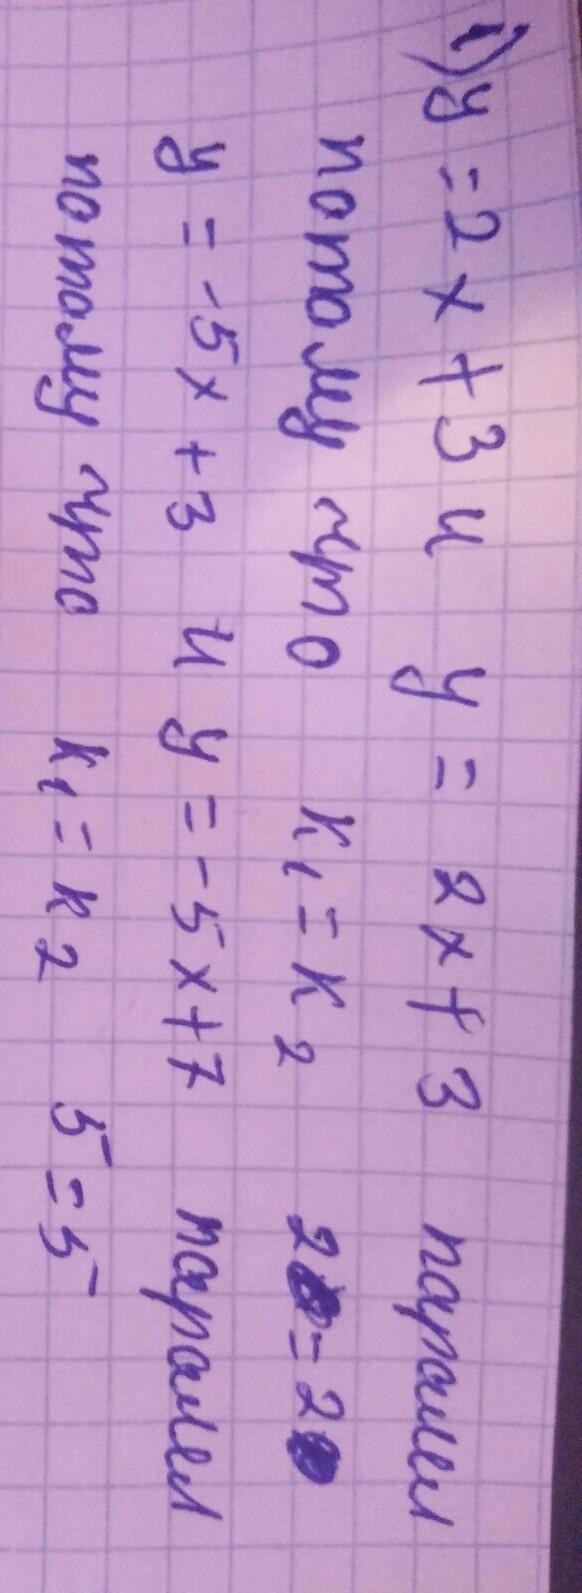 1) y = 2x + 3 и y = 2x + 3 парамел
потому что k₁ = k₂ 2 = 2
y = -5x + 3 и y = -5x + 7 парамел
потому что k₁ = k₂ 5 = 5